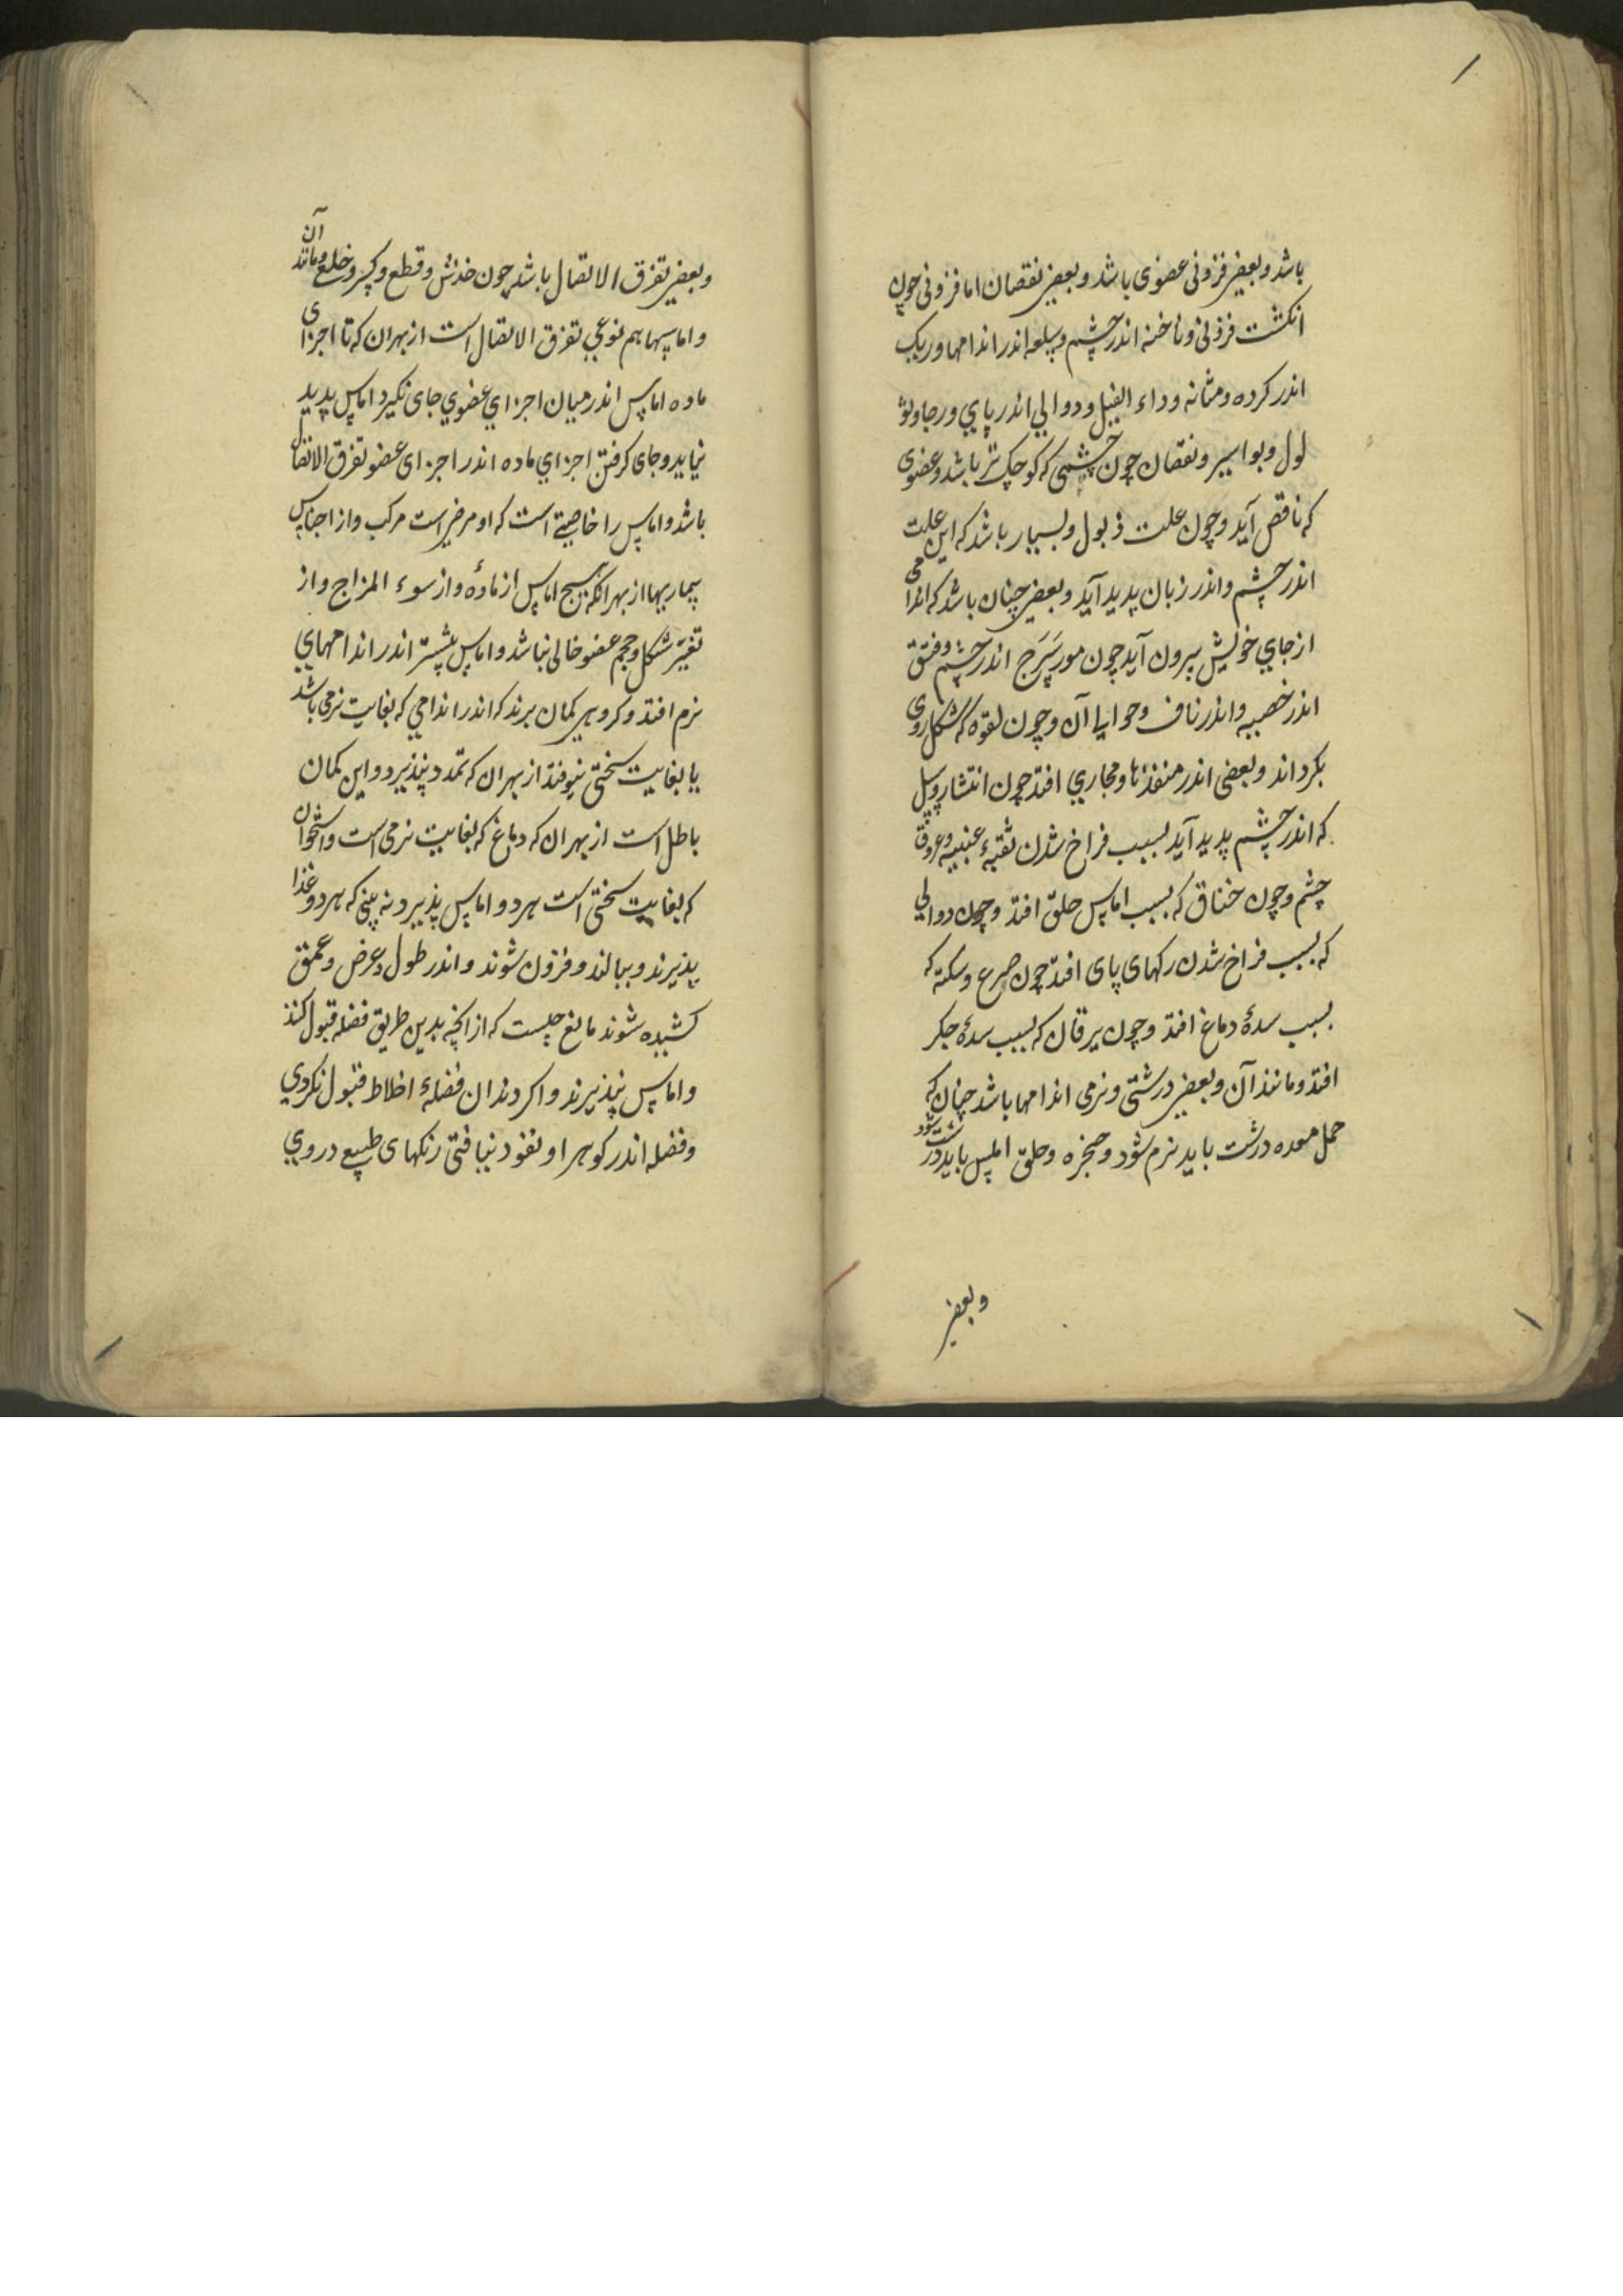 باشد و بعضی فزونی عضوی باشد و بعضی نقصان اما فزونی چون
انکشت فزونی و ناخنه اندر چشم و سلعه اندر اندامها و ریک
اندر کرده و مثانه و داء الفیل و دوالی اندر پای و رجا و تو
لول و بواسیر و نقصان چون چشمی که کوچک تر باشد و عضوی
که ناقص آید و چون علت ذبول و بسیار باشد که این علت
اندر چشم و اندر زبان پدید آید و بعضی چنان باشد که اندامی
از جای خویش بیرون آید چون مورسرج اندر چشم و فتق
اندر خصیه و اندر ناف و حوالیا آن و چون لقوه که شکل روی
بکرداند و بعضی اندر منفذنا و مجاری افتد چون انتشار و سیل
که اندر چشم پدید آید بسبب فراخ شدن ثقبهٔ عنبیه و عروق
چشم و چون خناق که بسبب اماس حلق افتد و چون دوالی
که بسبب فراخ شدن رکهای پای افتد چون صرع و سکته که
بسبب سدهٔ دماغ افتد و چون یرقان که بسبب سدهٔ جکر
افتد و مانند آن و بعضی درشتی و نرمی اندامها باشد چنان که
حمل معده درشت باید نرم شود و حنجره و حلق املس باید درشت شود
و بعضی
و بعضی تفرق الاتصال باشد چون خدش و قطع و کسر و خلع و مانند آن
و اماسها هم نوعی تفرق الاتصال است از بهر ان که تا اجزای
ماده اماس اندر میان اجزای عضوی جای نکیرد اماس پدید
نیاید و جای کرفتن اجزای ماده اندر اجزای عضو تفرق الاتصال
باشد و اماس را خاصیتی است که او مرضی است مرکب و از اجناس
بیماریها از بهر انکه هیچ اماس از مادهٔ و از سوء المزاج و از
تغیر شکل و حجم عضو خالی نباشد و اماس بیشتر اندر اندامهای
نرم افتد و کروهی کمان برند که اندر اندامی که بغایت نرمی باشد
یا بغایت سختی نیوفتد از بهر ان که تمدد نپذیرد و این کمان
باطل است از بهر ان که دماغ که بغایت نرمی است و استخوان
که بغایت سختی است هر دو اماس پذیرد نه بینی که هر دو غذا
پذیرند و ببالند و فزون شوند و اندر طول و عرض و عمق
کشیده شوند مانع چیست که از انچه بدین طریق فضله قبول کنند
و اماس نپذیرند و اکر دندان فضلهٔ اخلاط قبول نکردی
و فضله اندر کوهر او نفوذ نیافتی رنکهای طبیع در روی